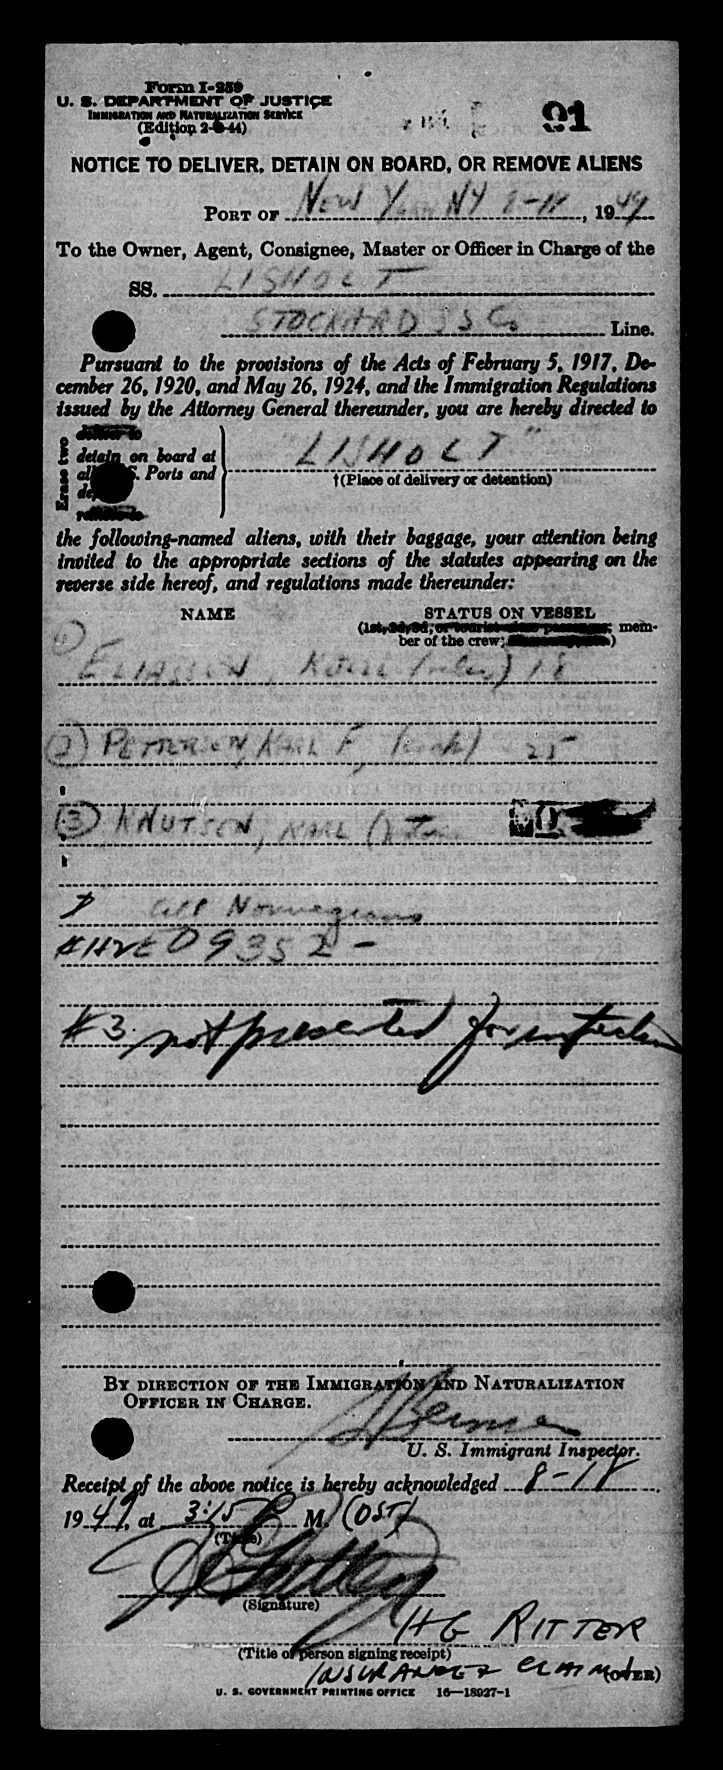 Form I-259
U. S. DEPARTMENT OF JUSTICE
IMMIGRATION AND NATURALIZATION SERVICE
(Edition 2-2-44)
91
NOTICE TO DELIVER, DETAIN ON BOARD, OR REMOVE ALIENS
PORT OF New York NY 8-18, 1949
To the Owner, Agent, Consignee, Master or Officer in Charge of the
SS. LISHOLT
STOCKARD SS Co Line.
Pursuant to the provisions of the Acts of February 5, 1917, De-
cember 26, 1920, and May 26, 1924, and the Immigration Regulations
issued by the Attorney General thereunder, you are hereby directed to
Erase two
deliver to
detain on board at
all U. S. Ports and
remove to
"LISHOLT"
†(Place of delivery or detention)
the following-named aliens, with their baggage, your attention being
invited to the appropriate sections of the statutes appearing on the
reverse side hereof, and regulations made thereunder:
NAME
STATUS ON VESSEL
(1st, 2d, 3d, or tourist class passenger; mem-
ber of the crew; )
(1)
ELIASSEN, 18
(2) PETTERSEN, KARL F, 25
(3) KNUTSEN, KARL
all Norwegians
09352 -
#3. not presented for inspection
BY DIRECTION OF THE IMMIGRATION AND NATURALIZATION
OFFICER IN CHARGE.
U. S. Immigrant Inspector.
Receipt of the above notice is hereby acknowledged 8-18,
1949, at 3:15 P M. (DST)
(Time)
(Signature)
HG RITTER
(Title of person signing receipt)
INSURANCE & CLAIM
(OVER)
U. S. GOVERNMENT PRINTING OFFICE 16—18927-1